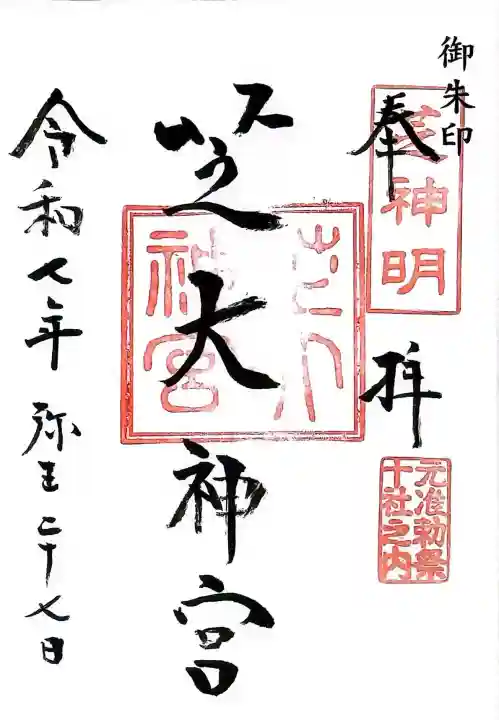 御朱印
奉拝
芝神明
元准勅祭
十社之内
芝大神宮
芝大
神宮
令和七年 弥生二十七日